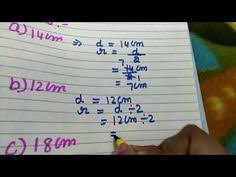 a) 14cm
⇒ d = 14cm
r = d/2
= 14cm/2
= 7cm
b) 12cm
d = 12cm
r = d ÷ 2
= 12cm ÷ 2
=
c) 18cm